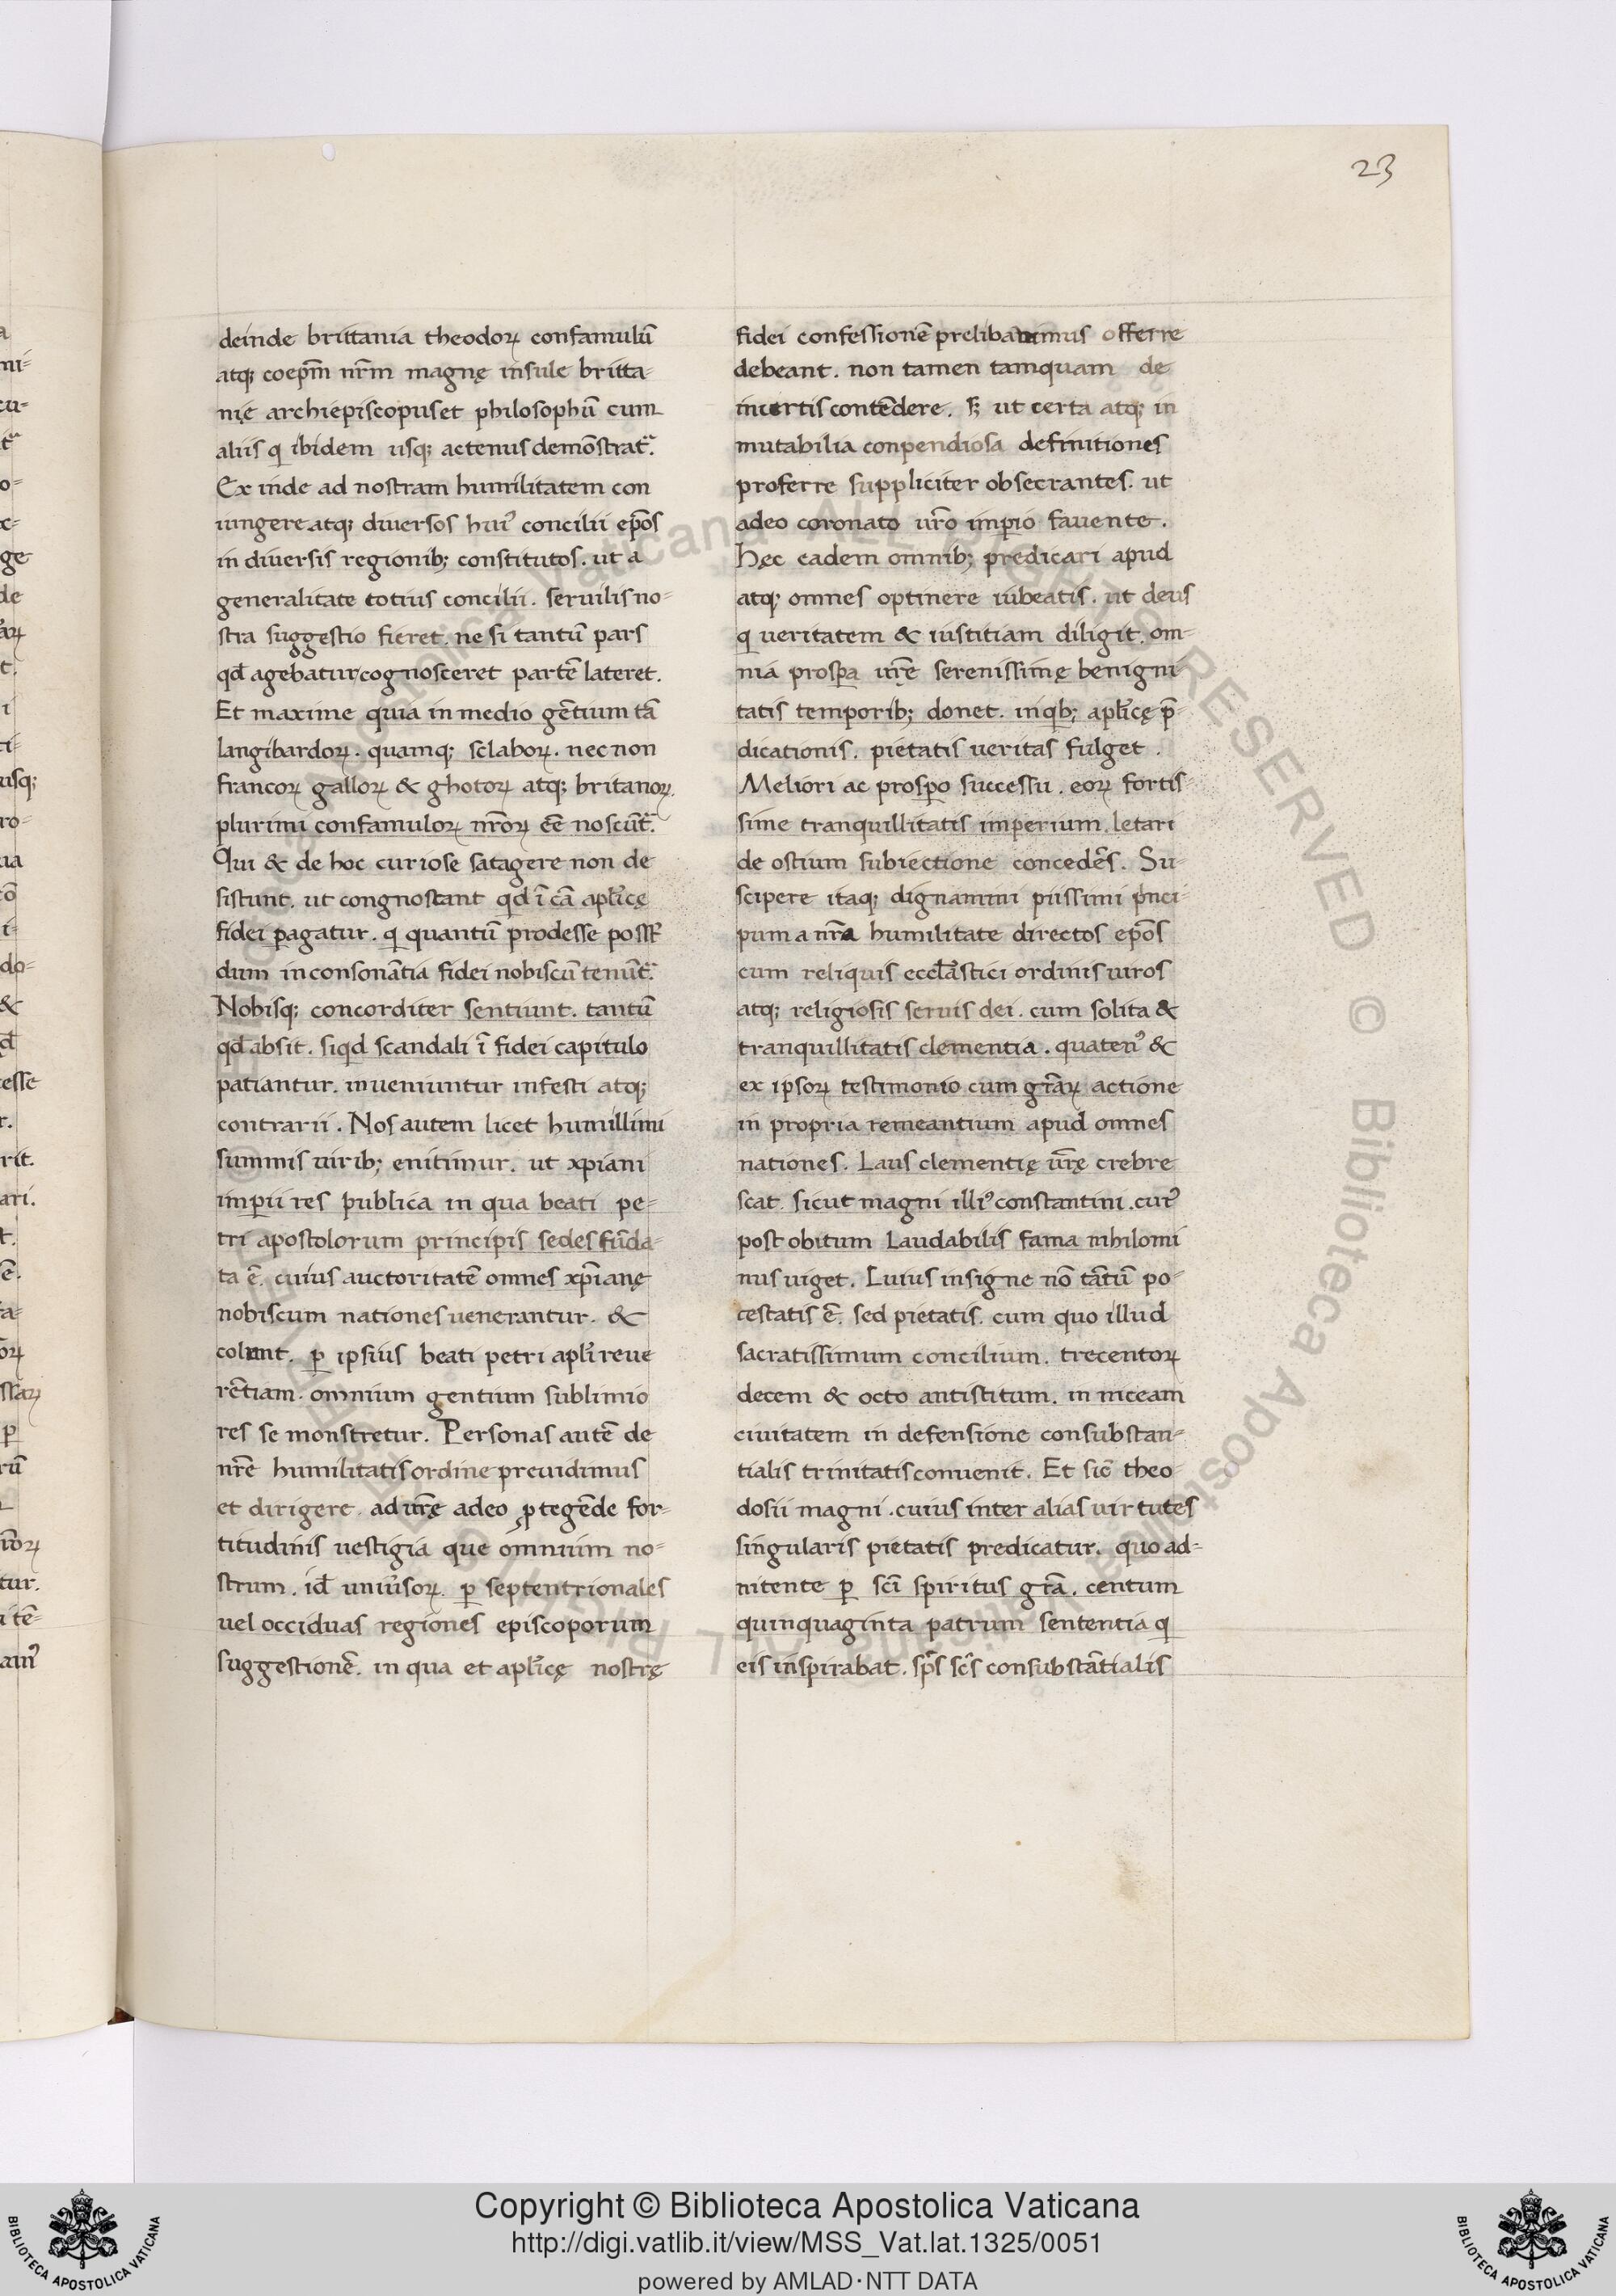 23
deinde brittania theodoꝝ confamulū
atq; coepm̄ nr̄m magnę insule britta-
nię archiepiscopus et philosophū cum
aliis q ibidem usq; actenus demōstrat᷑.
Ex inde ad nostram humilitatem con
iungere atq; diuersos hui᾽ concilii ep̄os
in diuersis regionib; constitutos. ut a
generalitate totius concilii. seruilis no-
stra suggestio fieret. ne si tantū pars
qd̄ agebatur cognosceret partē lateret.
Et maxime quia in medio gētium tā
langibardoꝝ. quamq; sclaboꝝ. nec non
francoꝝ galloꝝ & ghotoꝝ atq; britanoꝝ.
plurimi confamuloꝝ nr̄oꝝ eē noscūt᷑.
Qui & de hoc curiose satagere non de
sistunt. ut congnoscant qd̄ ī cā apl̄icę
fidei pagatur. q quantū prodesse poss᷑
dum in consonātia fidei nobiscū tenūt᷑.
Nobisq; concorditer sentiunt. tantū
qd̄ absit. siqd scandali ī fidei capitulo
patiantur. inueniuntur infesti atq;
contrarii. Nos autem licet humillimi
summis uirib; enitimur. ut xpiani
imꝑii res publica in qua beati pe-
tri apostolorum principis sedes fūda-
ta ē. cuius auctoritatē omnes xp̄ianę
nobiscum nationes uenerantur. &
colunt. ꝑ ipsius beati petri apl̄i reue
rētiam. omnium gentium sublimio
res se monstretur. Personas autē de
nr̄e humilitatis ordine preuidimus
et dirigere. ad ur̄ę adeo ꝓtegēde for-
titudinis uestigia que omnium no-
strum. id̄ uniu᾽soꝝ. ꝑ septentrionales
uel occiduas regiones episcoporum
suggestionē. in qua et apl̄icę nostrę
fidei confessionē prelibauimus offerre
debeant. non tamen tamquam de
incertis contēdere. s; ut certa atq; in
mutabilia conpendiosa definitiones
proferre suppliciter obsecrantes. ut
adeo coronato ur̄o imꝑio fauente.
Hęc eadem omnib; predicari apud
atq; omnes optinere iubeatis. ut deus
q ueritatem & iustitiam diligit. om-
nia prosꝑa ur̄ę serenissimę benigni
tatis temporib; donet. in qb; apl̄icę p̄-
dicationis. pietatis ueritas fulget.
Meliori ac prosꝑo successu. eoꝝ fortis-
sime tranquillitatis imperium. letari
de ostium subiectione concedēs. Su-
scipere itaq; dignamini piissimi pnci-
pum a nr̄a humilitate directos ep̄os
cum reliquis eccl̄astici ordinis uiros
atq; religiosis seruis dei. cum solita &
tranquillitatis clementia. quaten᾽ &
ex ipsoꝝ testimonio cum gr̄aꝝ actione
in propria remeantium apud omnes
nationes. Laus clementię ur̄ę crebre
scat. sicut magni illi᾽ constantini. cui᾽
post obitum Laudabilis fama nihilomi
nus uiget. Cuius insigne nō tātū po-
testatis ē. sed pietatis. cum quo illud
sacratissimum concilium. trecentoꝝ
decem & octo antistitum. in niceam
ciuitatem in defensione consubstan-
tialis trinitatis conuenit. Et sic̄ theo
dosii magni. cuius inter alias uirtutes
singularis pietatis predicatur. quo ad-
nitente ꝑ sc̄i spiritus gr̄a. centum
quinquaginta patrum sententia q
eis inspirabat. sp̄s sc̄s consubstātialis
Copyright © Biblioteca Apostolica Vaticana
http://digi.vatlib.it/view/MSS_Vat.lat.1325/0051
powered by AMLAD·NTT DATA
BIBLIOTECA APOSTOLICA VATICANA
BIBLIOTECA APOSTOLICA VATICANA